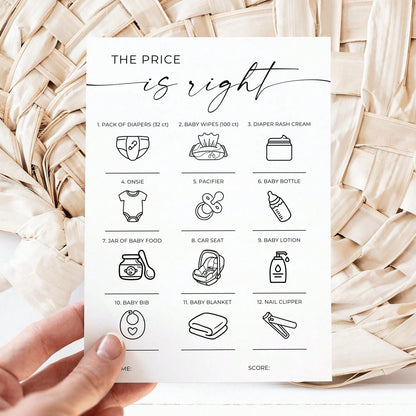 THE PRICE
is right
1. PACK OF DIAPERS (32 ct) 2. BABY WIPES (100 ct) 3. DIAPER RASH CREAM
4. ONSIE 5. PACIFIER 6. BABY BOTTLE
7. JAR OF BABY FOOD 8. CAR SEAT 9. BABY LOTION
10. BABY BIB 11. BABY BLANKET 12. NAIL CLIPPER
ME: SCORE: